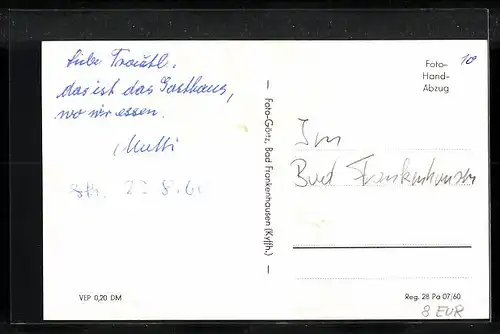 Liebe Trautl.
das ist das Gasthaus,
wo wir essen.
Mutti
8.60
VEP 0,20 DM
— Foto-Görtz, Bad Frankenhausen (Kyffh.) —
10
Foto-
Hand-
Abzug
Bad Frankenhausen
Reg. 28 Pa 07/60
8 EUR